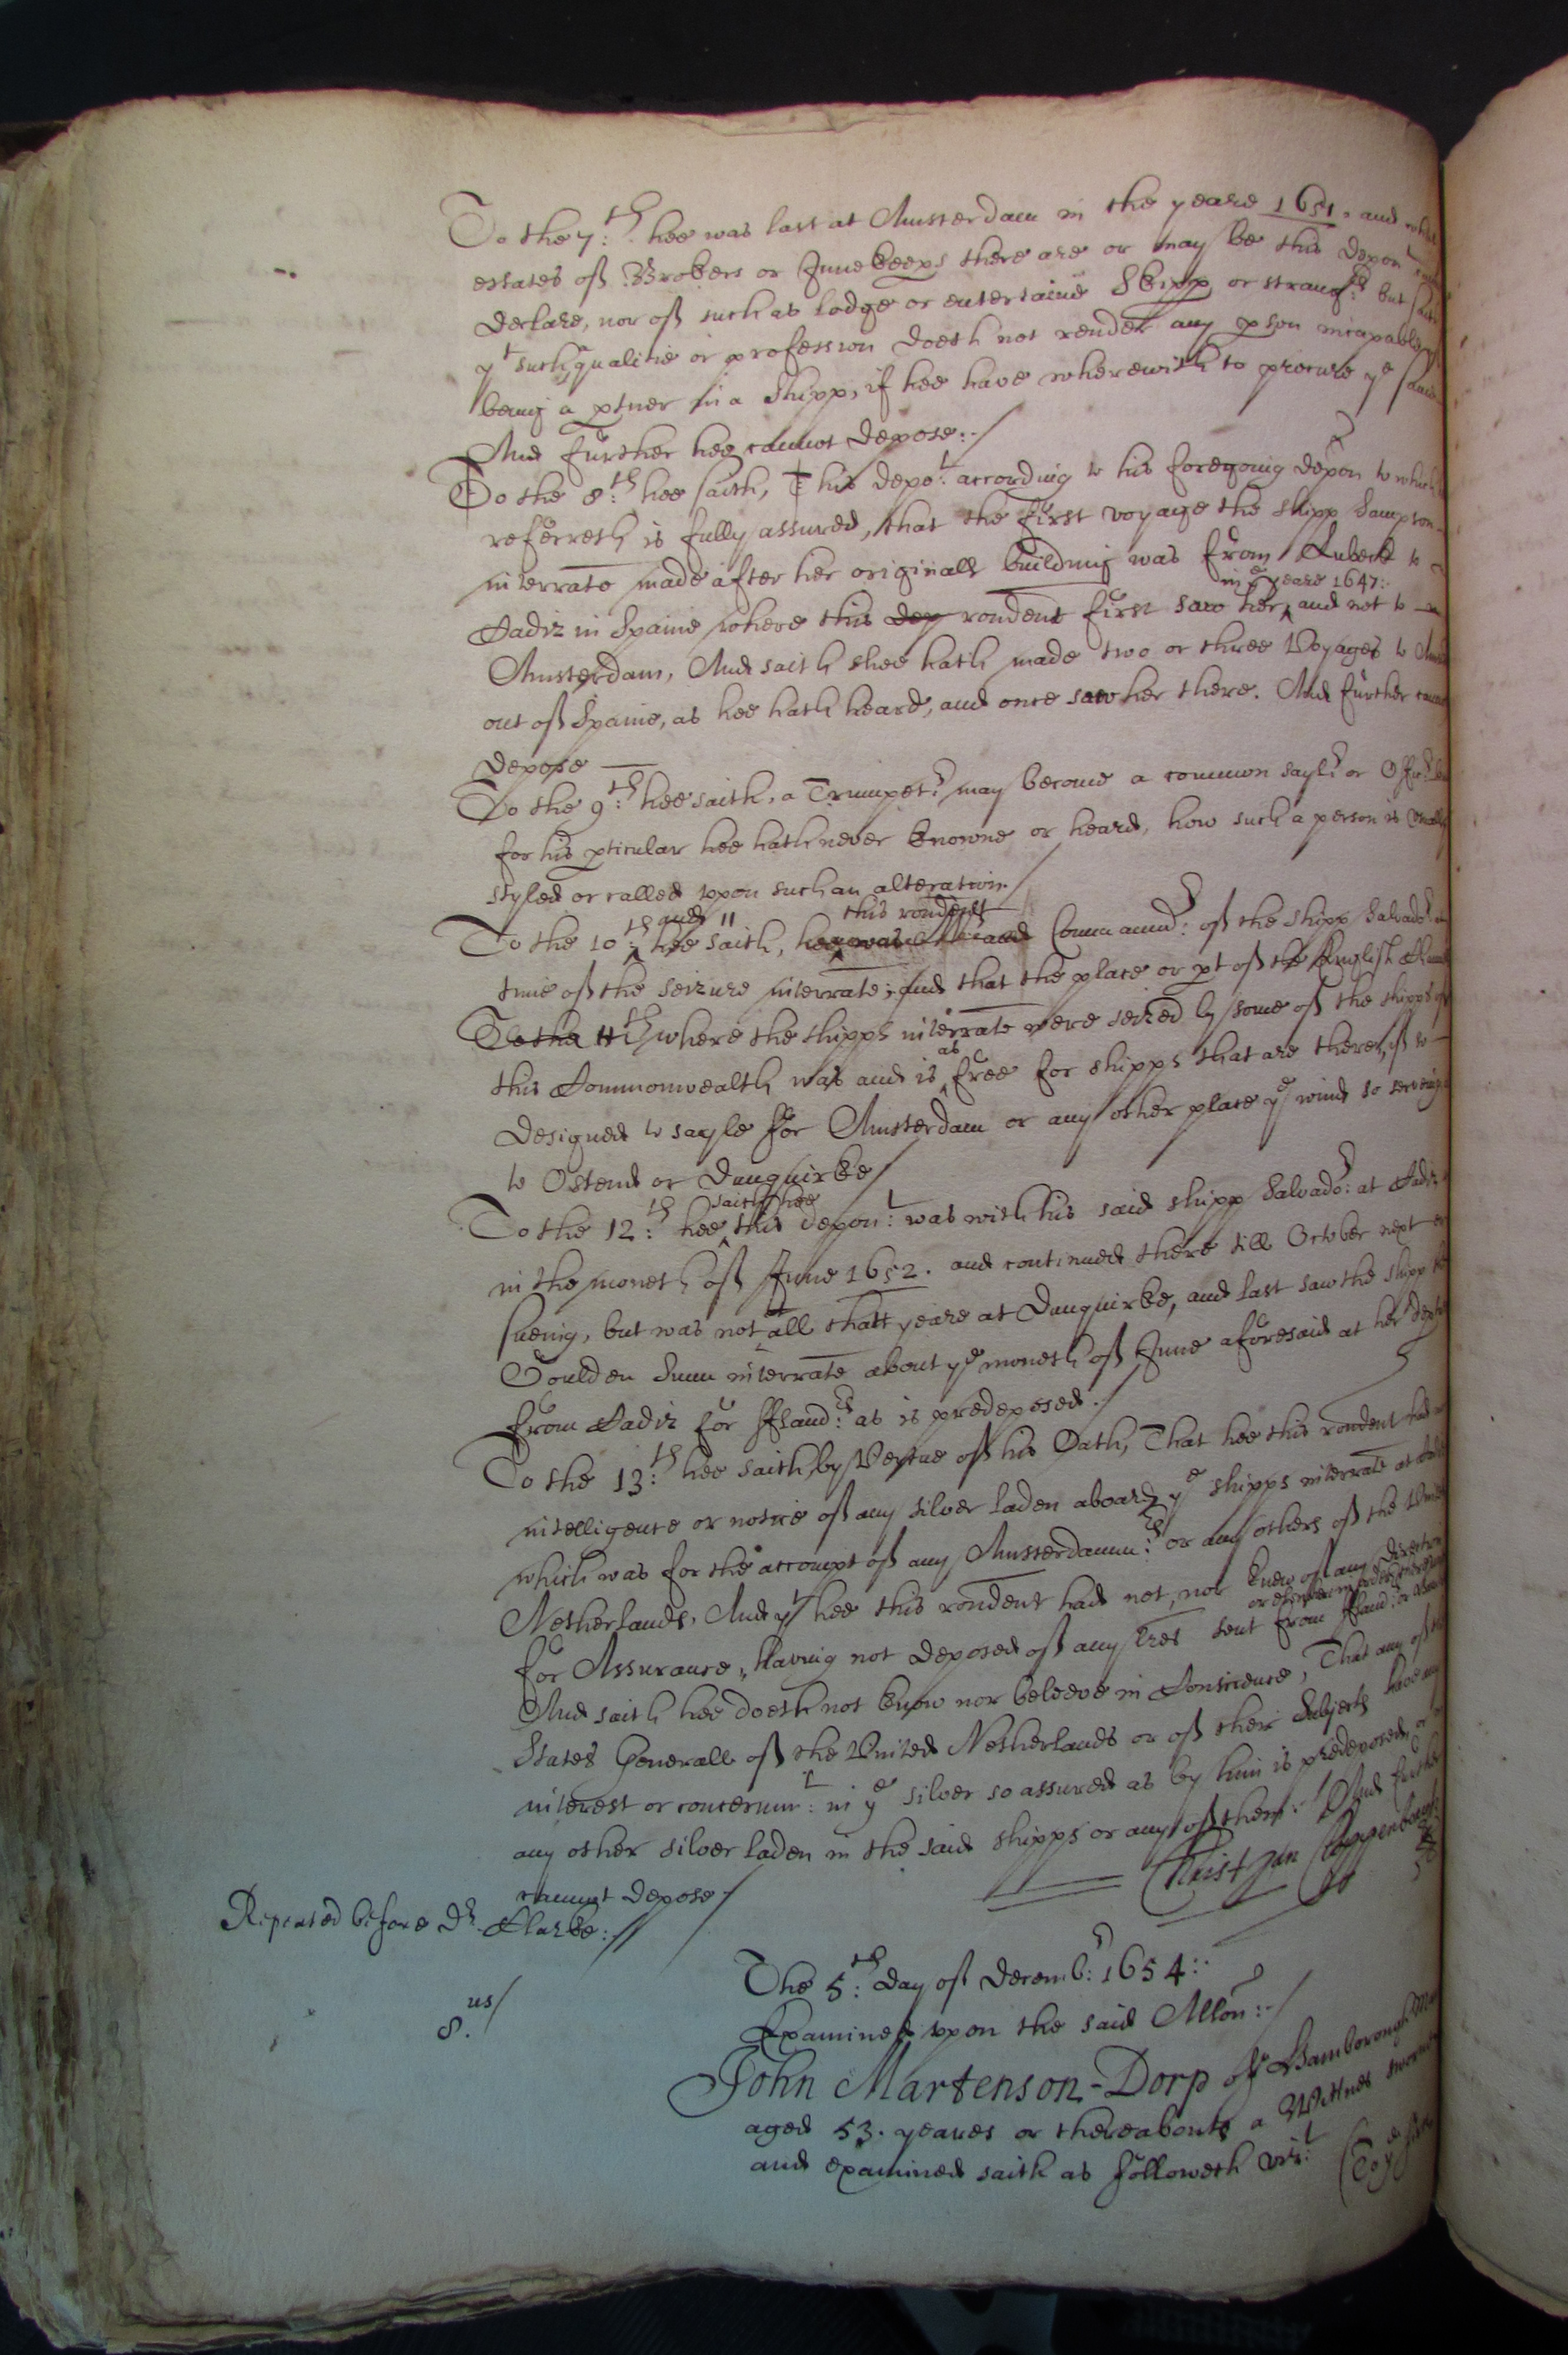 To the 7:th hee was last at Amsterdam in the yeare 1651. and what
estates of Brokers or Innekeeps there are or may be this depont
declare, nor of such as lodge or entertaine Skipp or strangrs but saith
yt such qualitie or profession doeth not render any pson incapable
being a ptner in a shipp, if hee have wherewith to procure ye same
And further hee cannot depose:-/
To the 8:th hee saith, This depot: according to his foregoing depon to which
referreth is fully assured, that the first voyage the shipp Sampson
interrate made after her originall building was from Lubeck to
in ye yeare 1647:
Cadiz in Spaine where this dep rondent first saw her, and not to
Amsterdam, And saith shee hath made two or three Voyages to
out of Spaine, as hee hath heard, and once saw her there. And further
depose
To the 9:th hee saith, a Trumpetr: may become a common saylr: or
for his pticular hee hath never knowne or heard, how such a person is
styled or called upon such an alteration./
and 11 this rondent
To the 10:th hee saith, hee was Commandr: of the shipp Salvador
time of the seizure interrate; and that the place or pt of the English
To the 11th where the shipps interrate were seized by some of the shipps of
as
this Commonwealth was and is free for shipps that are there, if
designed to sayle for Amsterdam or any other place ye wind so serveing
to Ostend or Dunquirke/
saith hee
To the 12:th hee this depont: was with his said shipp Salvador: at Cadiz
in the moneth of June 1652. and continued there till October next
sueing, but was not at all that yeare at Dunquirke, and last saw the shipp
Goulden Sunn interrate about ye moneth of June aforesaid at her
from Cadiz for Fland:rs as is predeposed./
To the 13:th hee saith by Vertue of his Oath, That hee this rondent had
intelligence or notice of any silver laden aboard ye shipps interrate at
which was for the accompt of any Amsterdamm:rs or any others of the
Netherlands, And yt hee this rondent had not, nor knew of any direction
for Assurance, having not deposed of any lres sent from Fland: or
And saith hee doeth not know nor beleeve in Conscience, That any of
States Generall of the United Netherlands or of their Subjects have any
interest or concernmt: in ye silver so assured as by him is predeposed, or
any other silver laden in the said shipps or any of them: And further
cannot depose/
Repeated before Dr. Clarke://
The 5:th day of Decembr: 1654:
Examined upon the said Allon:-/
8.us/
John Martenson-Dorp of Hamborough
aged 53. yeares or thereabouts a Wittnes sworne
and examined saith as followeth vizt:
To ye first